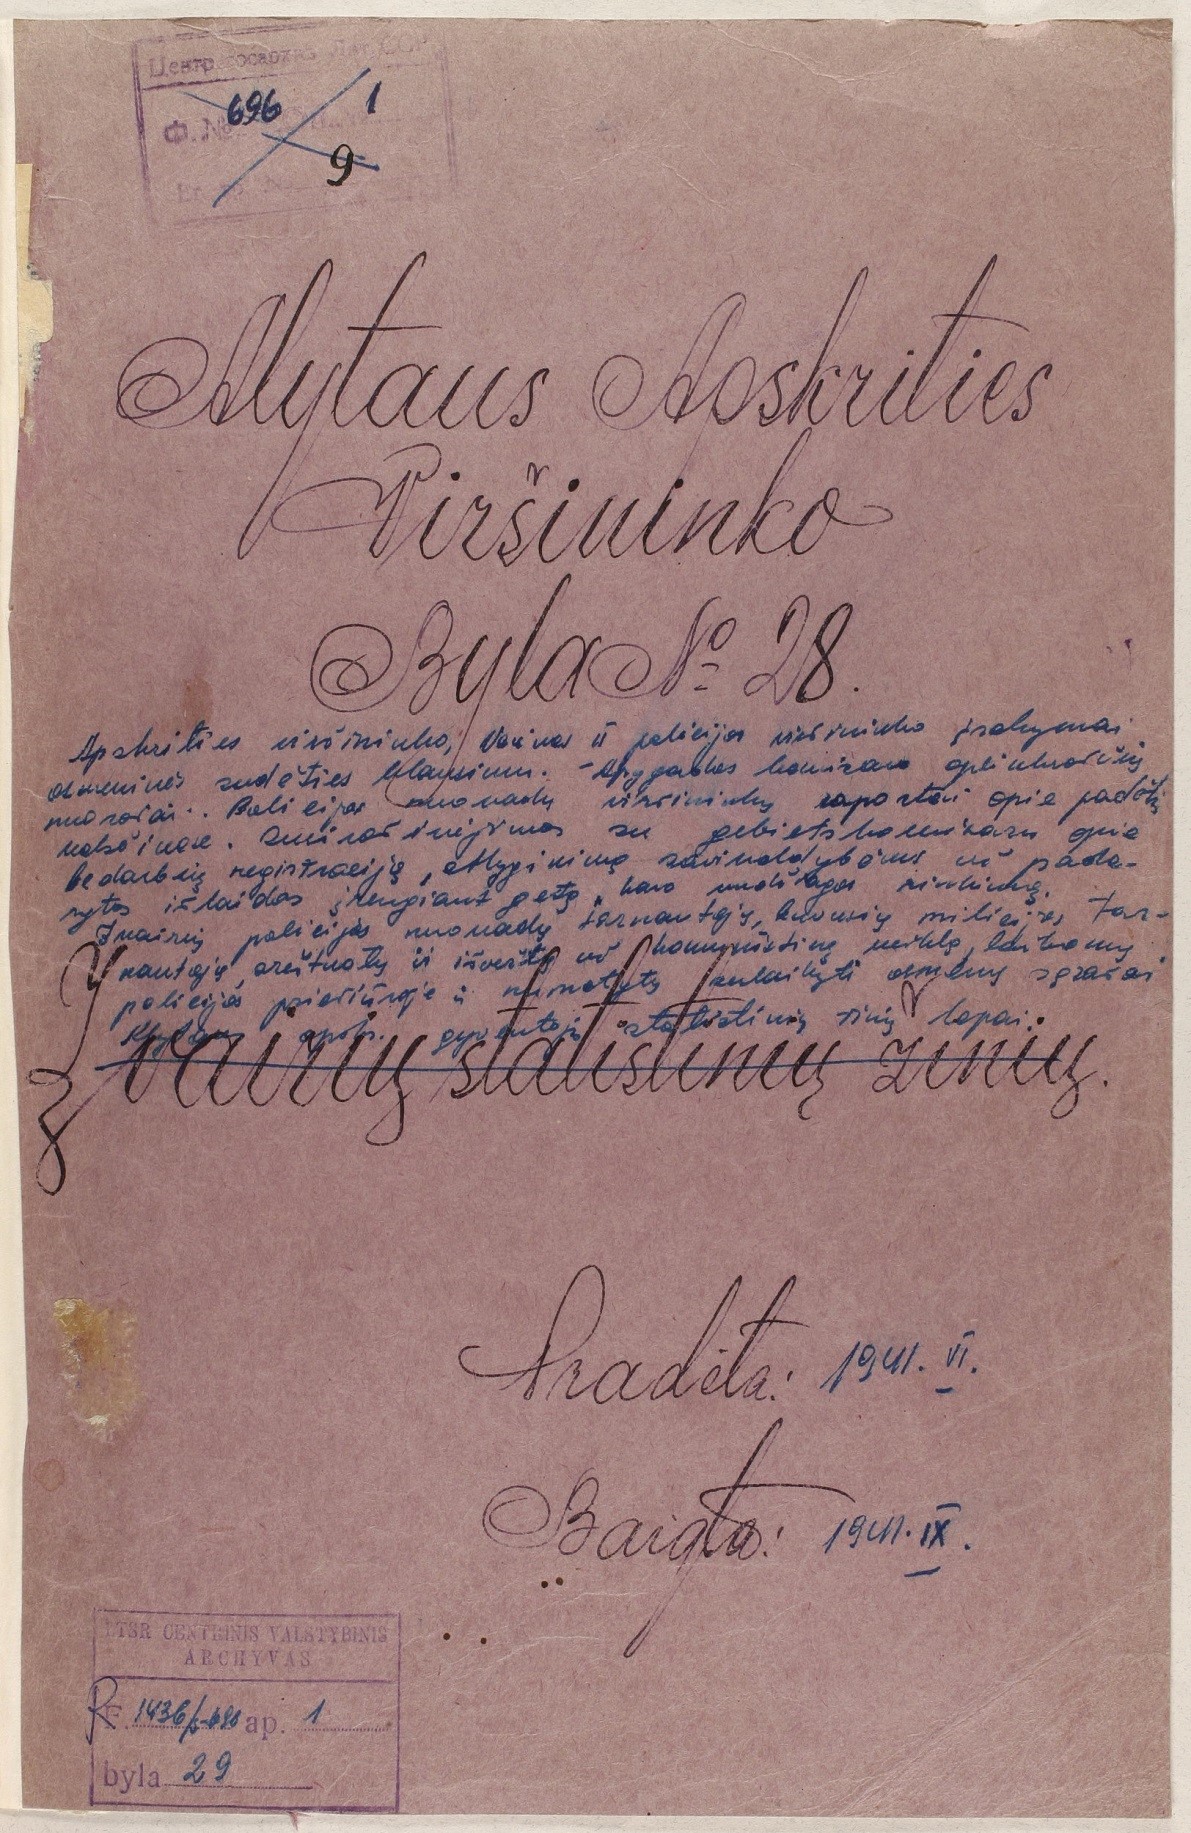 Центр. госархив Лит. ССР
Ф. № 696 1
9
Alytaus Apskrities
Viršininko
Byla № 28.
Apskrities viršininko, Varėnos ir policijos viršininko įsakymai
asmeninės sudėties klausimu. Apygardos komisaro aplinkraščių
nuorašai. Policijos nuovadų viršininkų raportai apie padėtį
valsčiuose. Susirašinėjimas su gebietskomisaru apie
bedarbių registraciją, atlyginimą savivaldybėms už pada-
rytas išlaidas įrengiant getą, karo medžiagos rinkimą.
Įvairių policijos nuovadų tarnautojų, buvusių milicijos tar-
nautojų, areštuotų ir išvežtų už komunistinę veiklą, laikomų
policijos priežiūroje ir numatytų sulaikyti asmenų sąrašai
Alytaus apskr. gyventojų statistinių žinių lapai.
Įvairių statistinių žinių.
Pradėta: 1941. VI.
Baigta: 1941. IX.
LTSR CENTRINIS VALSTYBINIS
ARCHYVAS
R F. 1436 ap. 1
byla 29